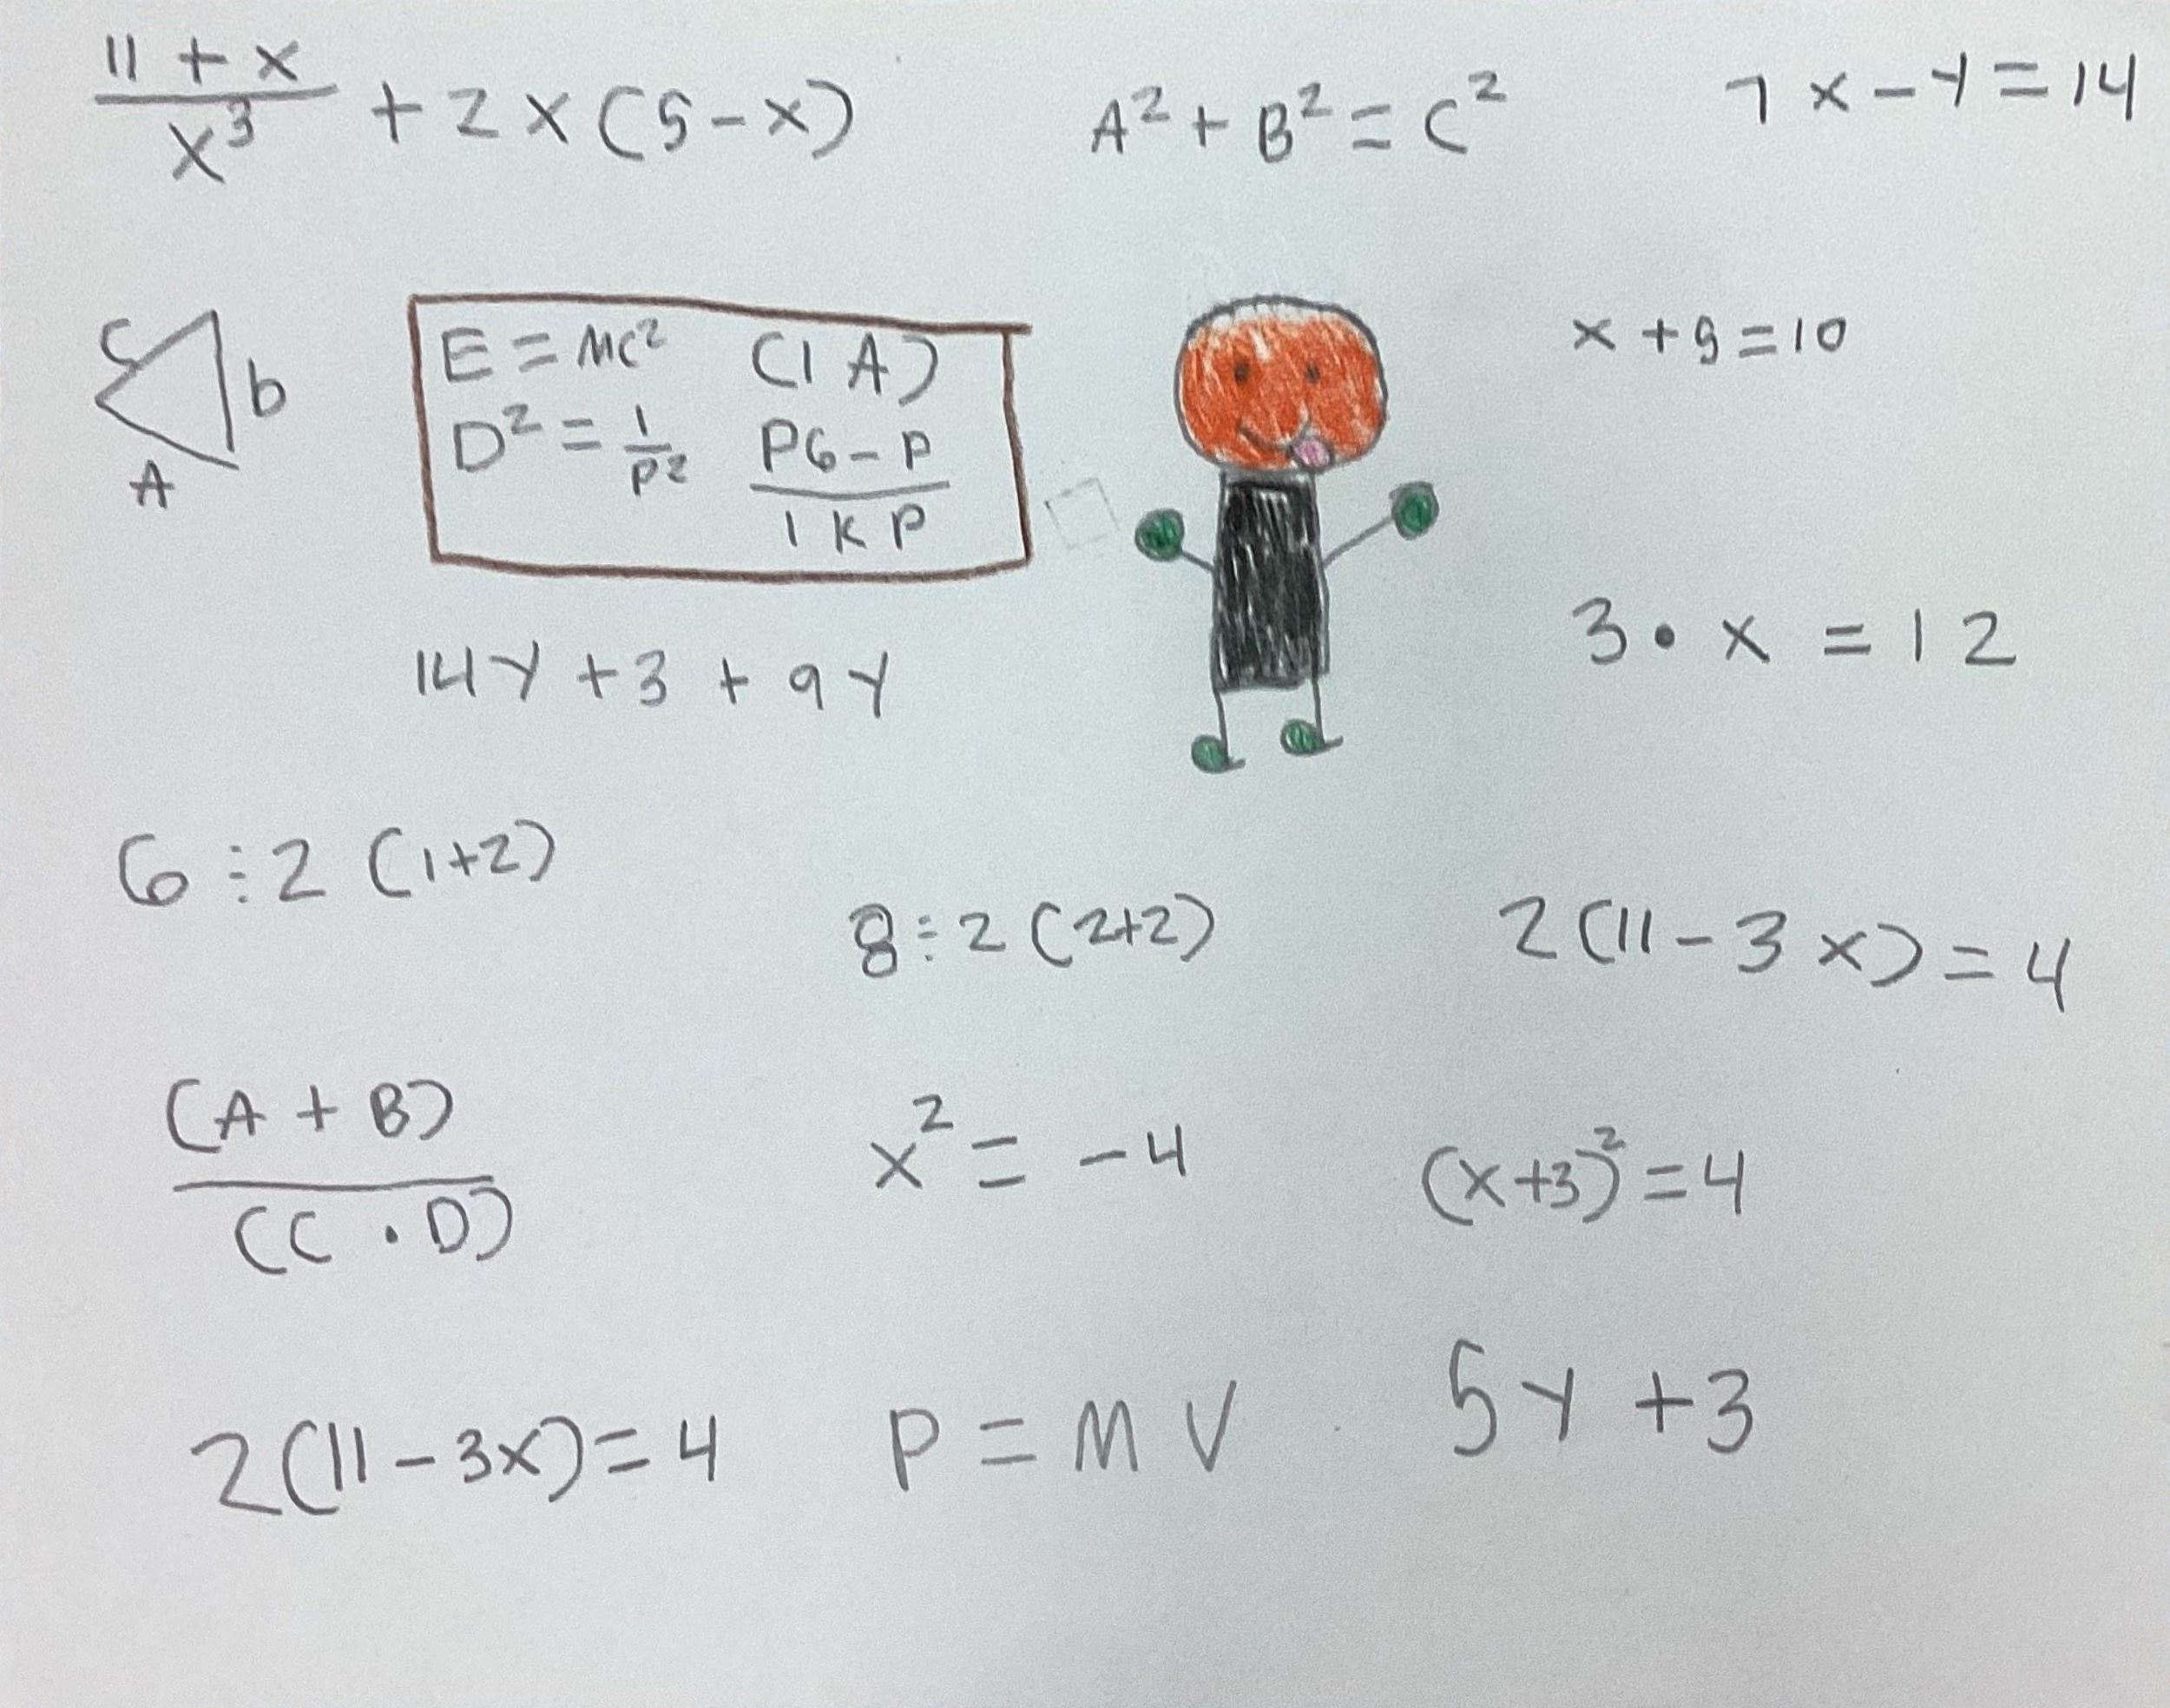 11 + x
x³ + 2 x (5 - x)
A² + B² = C²
7 x - y = 14
C
b
A
E = MC² (1 A)
D² = 1/P² PG - P
1 K P
x + 9 = 10
14y + 3 + 9y
3 • x = 12
6 ÷ 2 (1+2)
8 ÷ 2 (2+2)
2 (11 - 3x) = 4
(A + B)
(C • D)
x² = -4
(x+3)² = 4
2(11 - 3x) = 4
P = M V
5y + 3